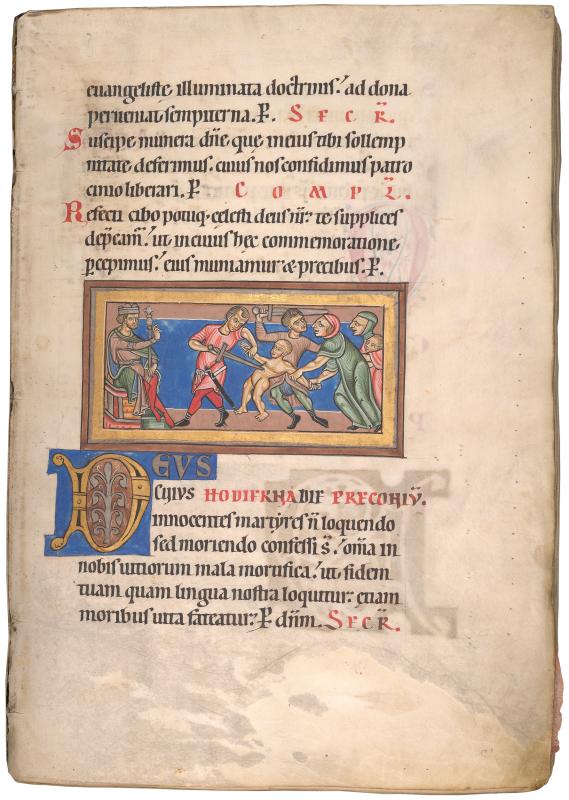 euangeliste illuminata doctrinis. ad dona
perueniat sempiterna. P. SECR.
Suscipe munera dñe que in eius tibi sollemp
nitate deferimus. cuius nos confidimus patro
cinio liberari. P COMPL.
Refecti cibo potuq; celesti deus nr̄. te supplices
dep̄cam̄. ut in cuius hec commemoratione
p̄cepimus. eius muniamur & precibus. P.
DEVS
CUIUS HODIERNA DIE PRECONIV̄.
innocentes martyres ñ loquendo
sed moriendo confessi s̄. om̄a in
nobis uitiorum mala mortifica. ut fidem
tuam quam lingua nostra loquitur. etiam
moribus uita fateatur. P dñm. SECR.